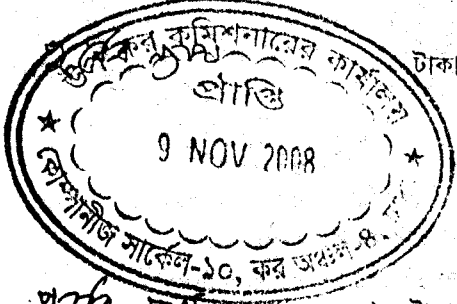 কর কমিশনারের কার্যালয়
টাকা
প্রাপ্তি
9 NOV 2008
কোম্পানীজ সার্কেল-১০, কর অঞ্চল-৪,